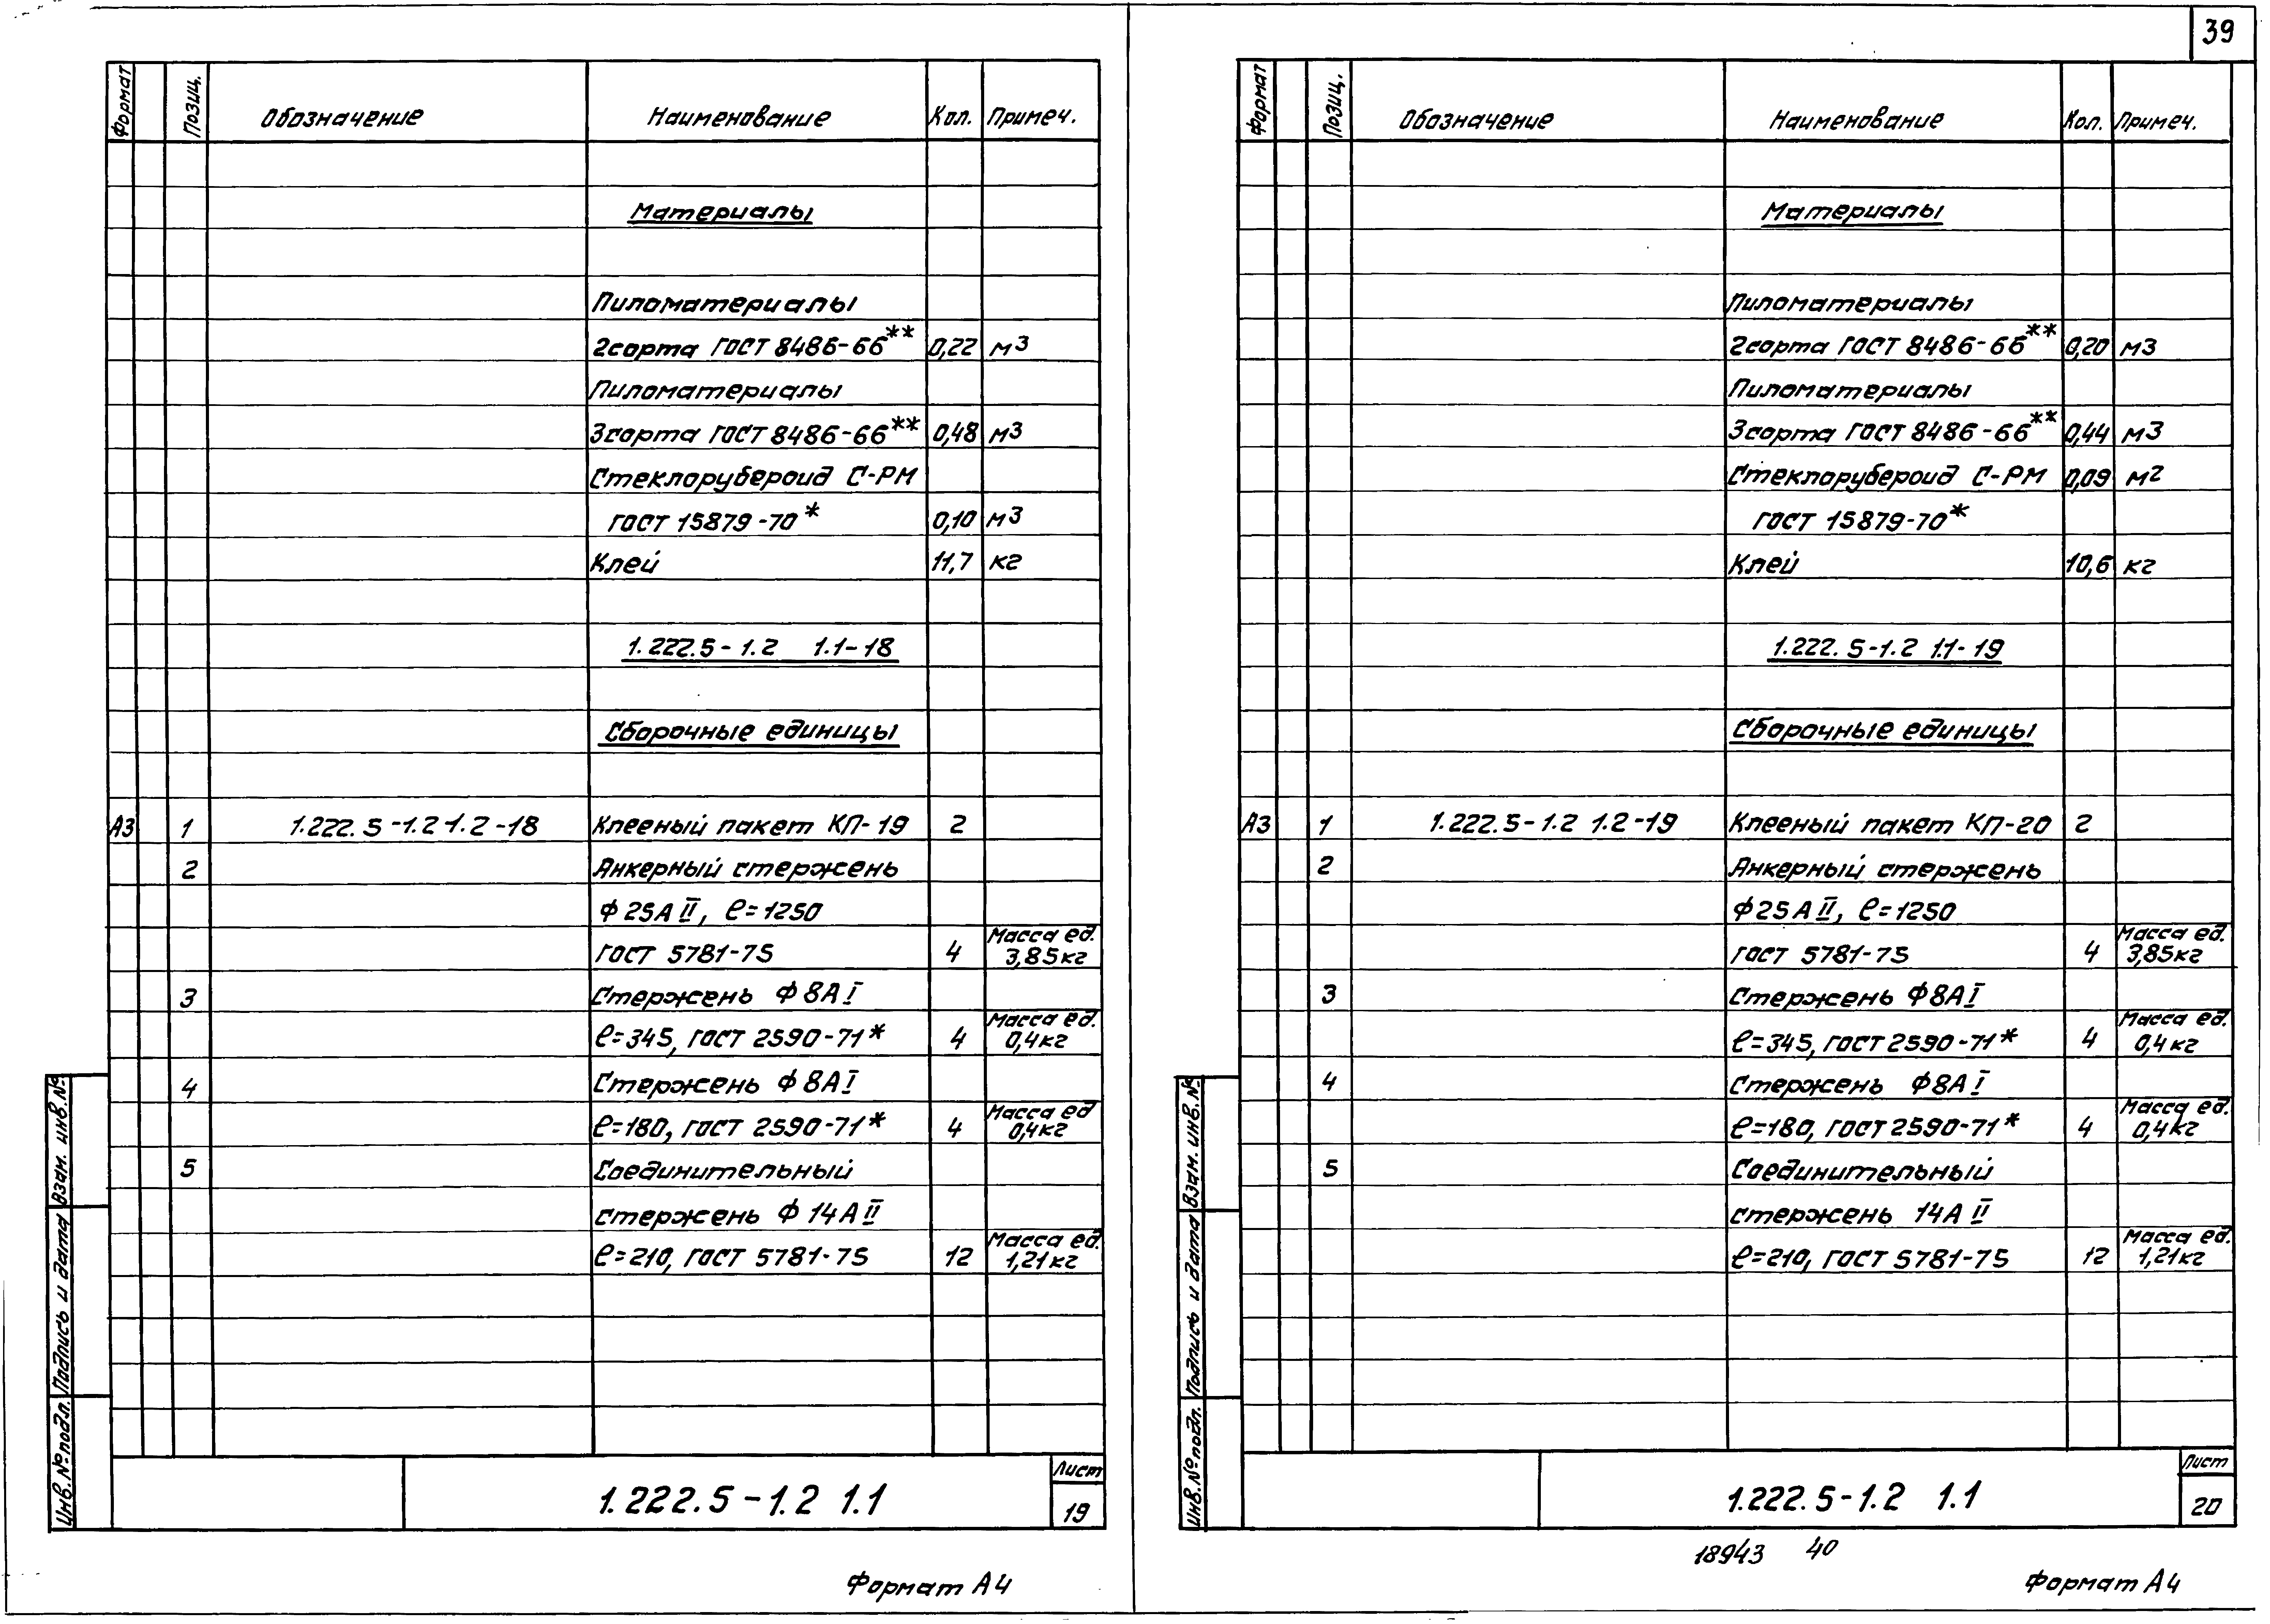 39
Формат Позиц. Обозначение Наименование Кол. Примеч.
Материалы
Пиломатериалы
2сорта ГОСТ 8486-66** 0,22 м3
Пиломатериалы
3сорта ГОСТ 8486-66** 0,48 м3
Стеклорубероид С-РМ
ГОСТ 15879-70* 0,10 м3
Клей 11,7 кг
1.222.5-1.2 1.1-18
Сборочные единицы
А3 1 1.222.5-1.2 1.2-18 Клееный пакет КП-19 2
2 Анкерный стержень
Ф25АII, ℓ=1250
ГОСТ 5781-75 4 Масса ед. 3,85кг
3 Стержень Ф8АI
ℓ=345, ГОСТ 2590-71* 4 Масса ед. 0,4кг
4 Стержень Ф8АI
ℓ=180, ГОСТ 2590-71* 4 Масса ед 0,4кг
5 Соединительный
стержень Ф 14АII
ℓ=210, ГОСТ 5781-75 12 Масса ед. 1,21кг
Инв.№подл. Подпись и дата Взам. инв.№
1.222.5-1.2 1.1
Лист
19
Формат А4
Формат Позиц. Обозначение Наименование Кол. Примеч.
Материалы
Пиломатериалы
2сорта ГОСТ 8486-66** 0,20 м3
Пиломатериалы
3сорта ГОСТ 8486-66** 0,44 м3
Стеклорубероид С-РМ 0,09 м2
ГОСТ 15879-70*
Клей 10,6 кг
1.222.5-1.2 1.1-19
Сборочные единицы
А3 1 1.222.5-1.2 1.2-19 Клееный пакет КП-20 2
2 Анкерный стержень
Ф25АII, ℓ=1250
ГОСТ 5781-75 4 Масса ед. 3,85кг
3 Стержень Ф8АI
ℓ=345, ГОСТ 2590-71* 4 Масса ед. 0,4кг
4 Стержень Ф8АI
ℓ=180, ГОСТ 2590-71* 4 Масса ед. 0,4кг
5 Соединительный
стержень 14АII
ℓ=210, ГОСТ 5781-75 12 Масса ед. 1,21кг
Инв.№подл. Подпись и дата Взам. инв.№
1.222.5-1.2 1.1
Лист
20
18943 40
Формат А4